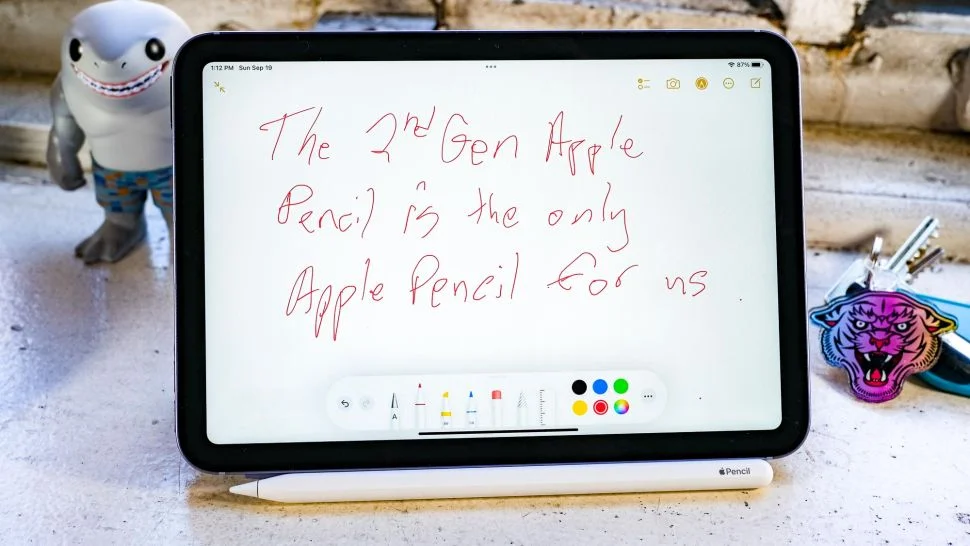 1:12 PM Sun Sep 19
87%
The 2nd Gen Apple
Pencil is the only
Apple Pencil for us
A
Pencil